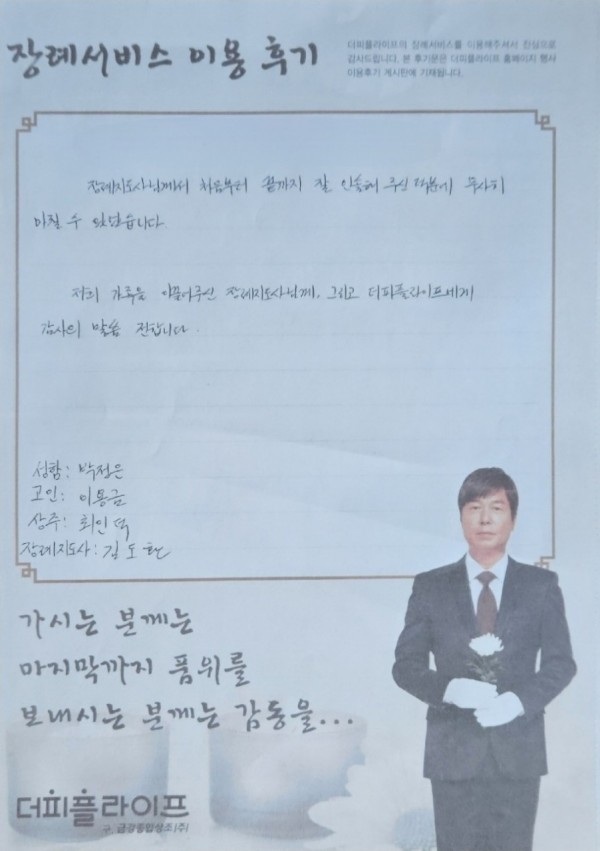 장례서비스 이용 후기
더피플라이프의 장례서비스를 이용해주셔서 진심으로
감사드립니다. 본 후기문은 더피플라이프 홈페이지 행사
이용후기 게시판에 기재됩니다.
장례지도사님께서 처음부터 끝까지 잘 인솔해 주신 덕분에 무사히
마칠 수 있었습니다.
저희 가족을 이끌어주신 장례지도사님께, 그리고 더피플라이프에게
감사의 말씀 전합니다.
성함: 박정은
고인: 이봉금
상주: 최인덕
장례지도사: 김도현
가시는 분께는
마지막까지 품위를
보내시는 분께는 감동을...
더피플라이프
구. 금강종합상조(주)